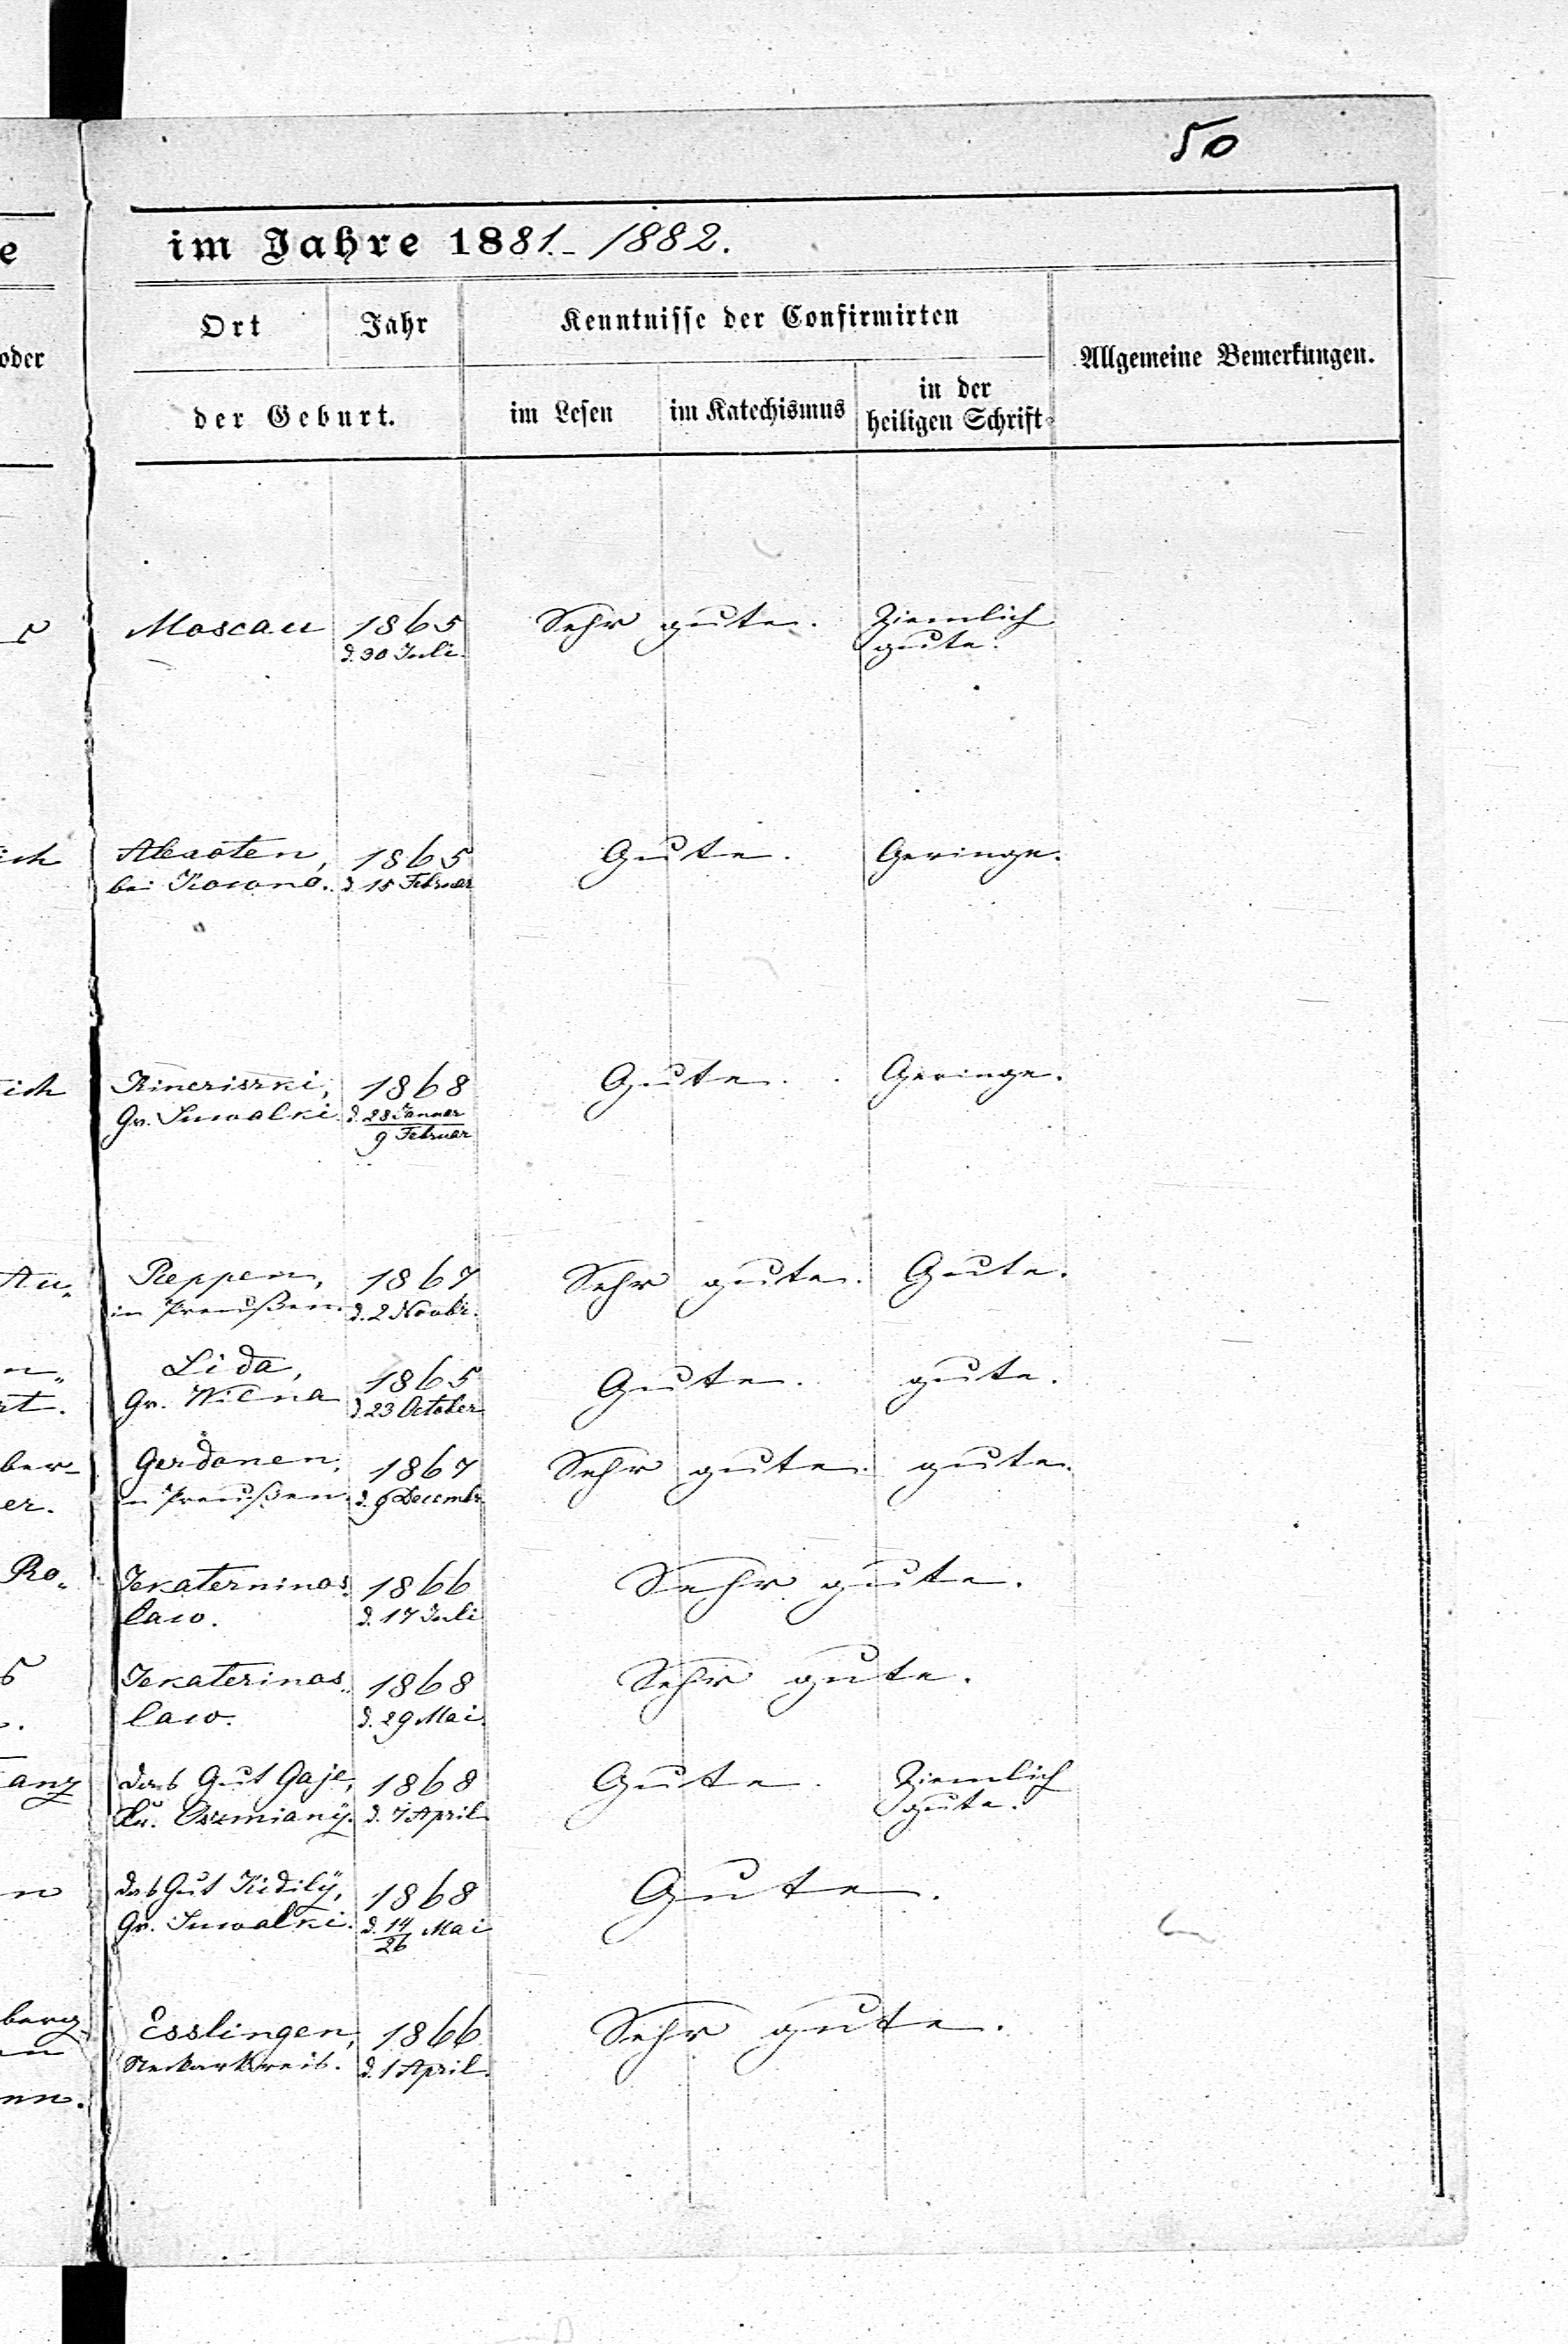 50
im Jahre 1881.- 1882.
Ort Jahr Kenntnisse der Confirmirten Allgemeine Bemerkungen.
der Geburt. im Lesen im Katechismus in der heiligen Schrift
Moscau 1865 Sehr gute. Ziemlich
d. 30 Juli. gute.
ich Alexoten, 1865 Gute. Geringe.
bei Kowno. d. 15 Februar
ich 1868 Gute. Geringe.
Gv. Suwalki d. 28 Januar
9 Februar
Au= Reppen, 1867 Sehr gute. Gute.
in Preußen. d. 2 Novbr.
Lida, 1865 Gute. gute.
rt. Gv. Wilna d. 23 October
ber- Gerdauen, 1867 Sehr gute. gute.
er. in Preußen. d. 9 Decembr.
Ro= Jekaterninos= 1866 Sehr gute.
law. d. 17 Juli
Jekaterinos= 1868 Sehr gute.
law. d. 29 Mai.
anz das Gut Gaje, 1868 Gute. Ziemlich
Kr. Oszmiany. d. 7 April gute.
n das Gut Kidily, 1868 Gute.
Gv. Suwalki. d. 14/26 Mai
berg= Esslingen, 1866 Sehr gute.
Neckarkreis. d. 1 April.
nn.